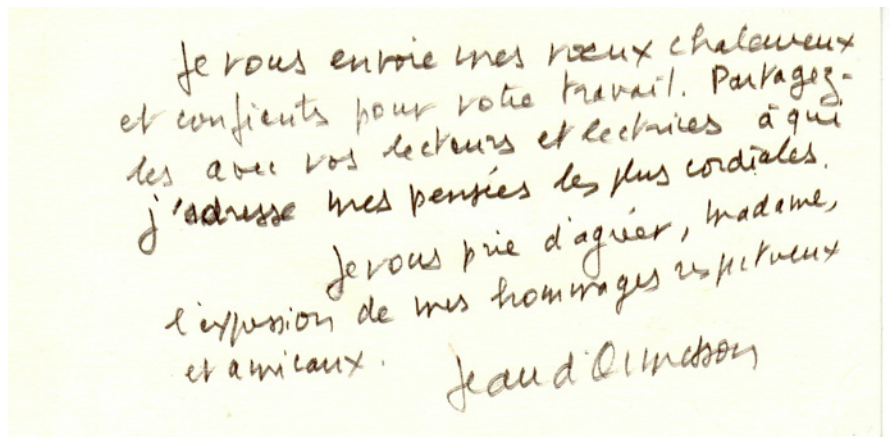 Je vous envoie mes vœux chaleureux
et confiants pour votre travail. Partagez-
les avec vos lecteurs et lectrices à qui
j'adresse mes pensées les plus cordiales.
Je vous prie d'agréer, madame,
l'expression de mes hommages respectueux
et amicaux.
Jean d'Ormesson